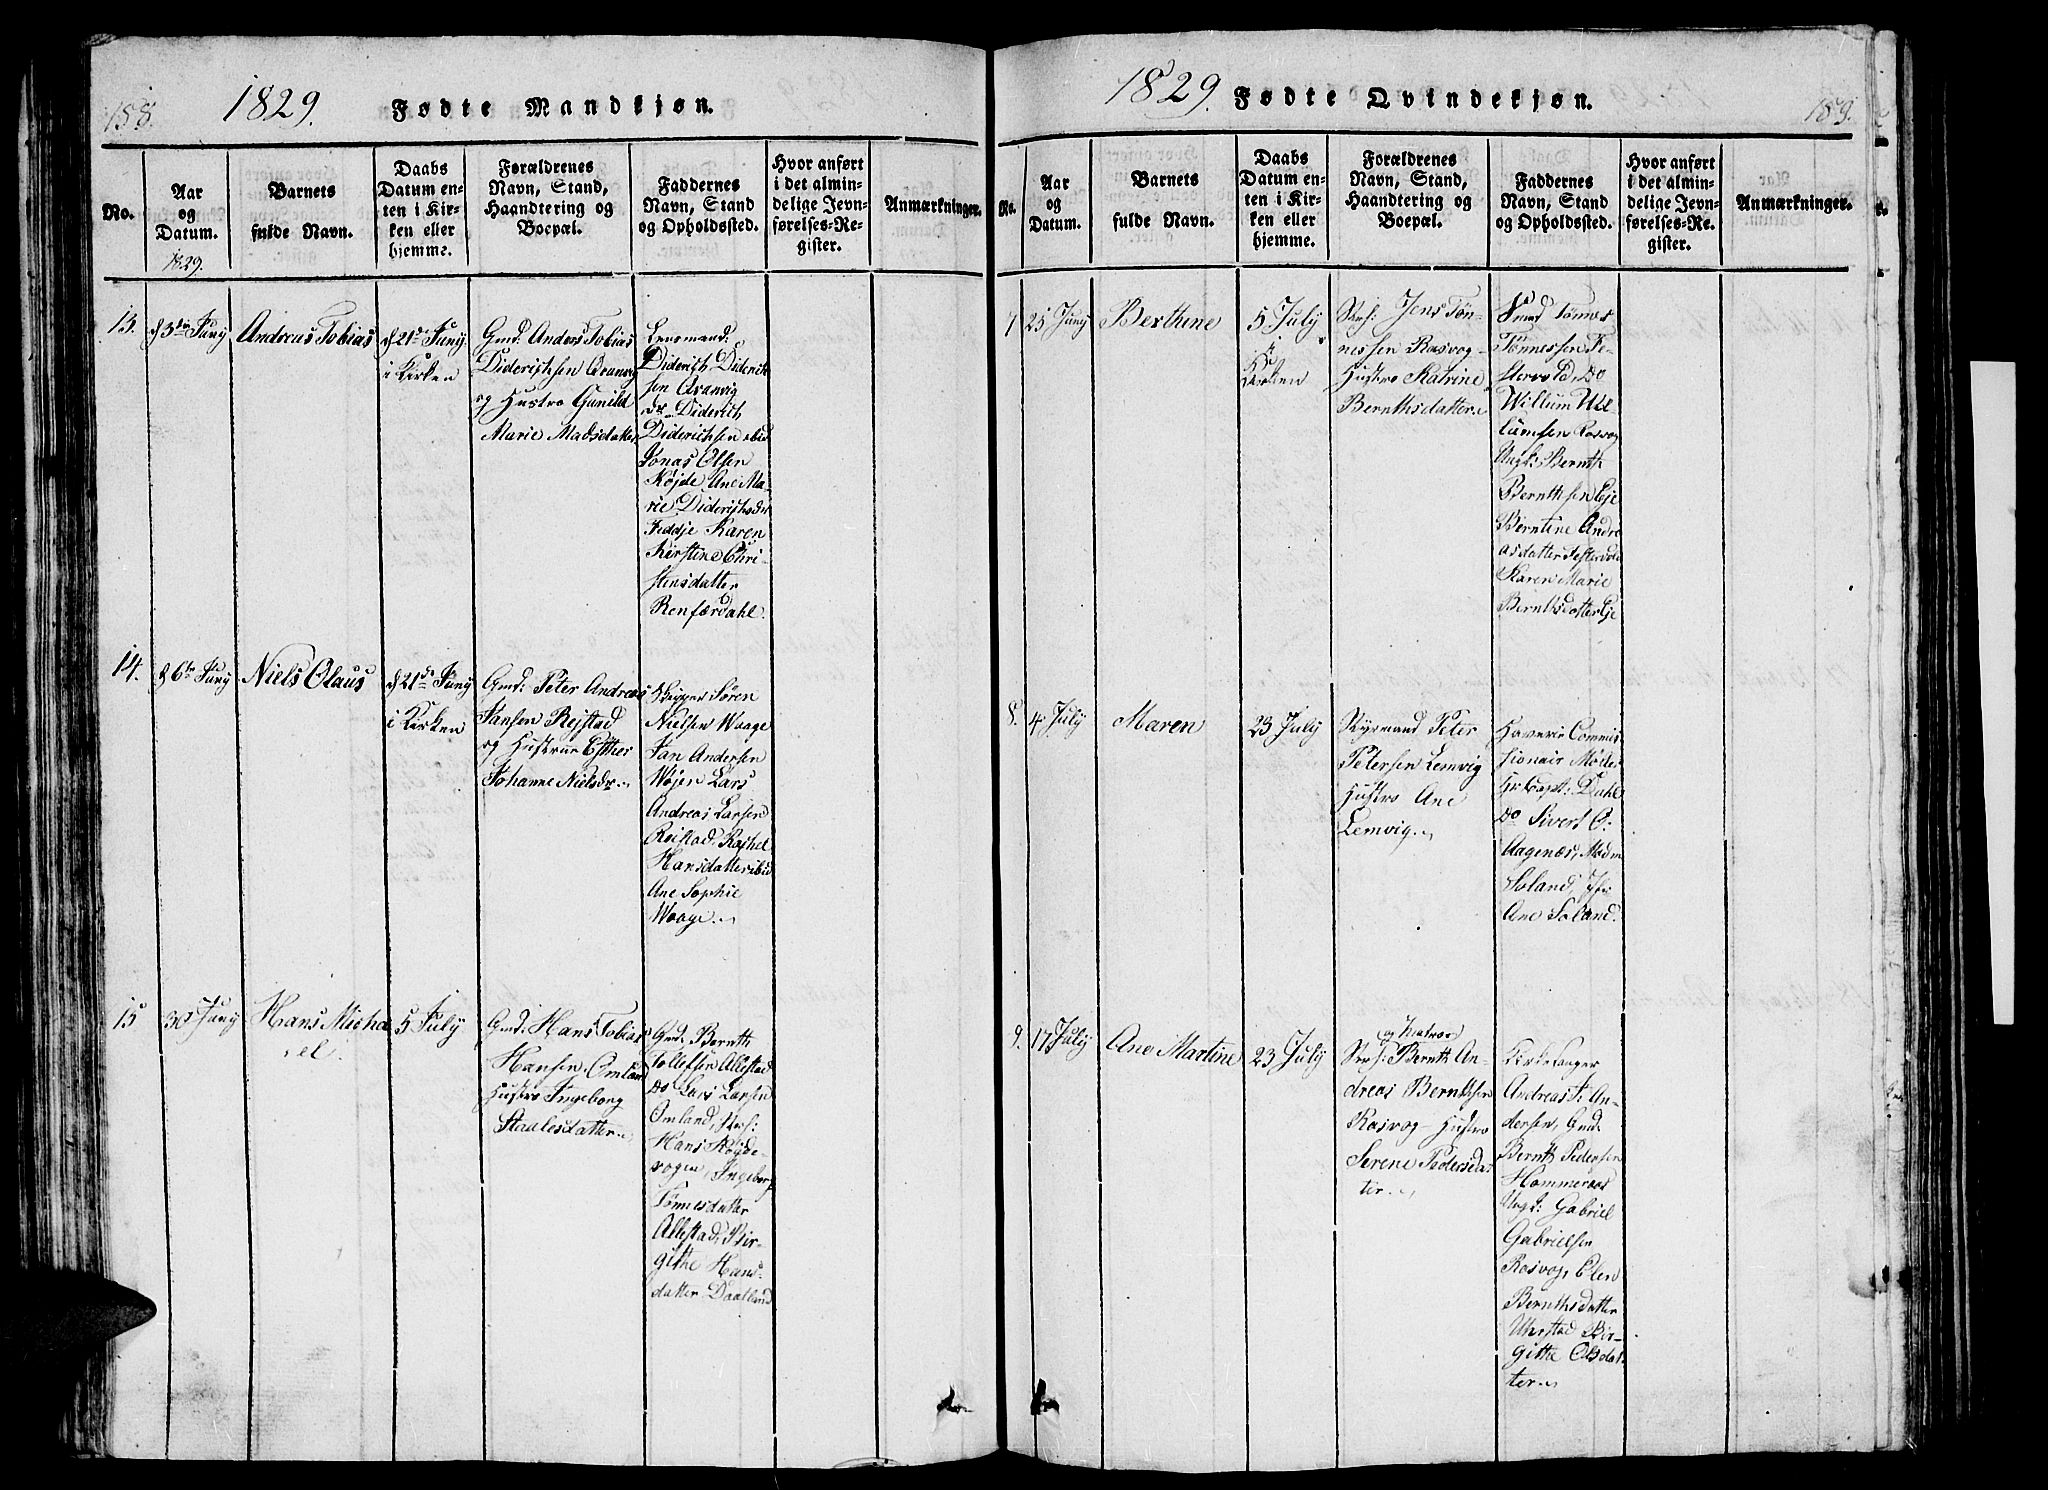 158.
1829.
Fødte Mandkjøn.
No.
Aar
og
Datum.
Barnets
fulde Navn.
Daabs
Datum en-
ten i Kir-
ken eller
hjemme.
Forældrenes
Navn, Stand,
Haandtering og
Boepæl.
Faddernes
Navn, Stand
og Opholdssted.
Hvor anført
i det almin-
delige Jevn-
førelses-Re-
gister.
Anmærkninger.
1829.
13.
d 3die Juny
Andreas Tobias
d 21de Juny
i Kirken
Gmd: Anders Tobias
Diderichsen Qvanvig
og Hustro Gunild
Marie Madsdatter
Lensmand:
Diderich Diderich
sen Qvanvig
Diderich
Diderichsen ibid
Jonas Olsen
Højde Ane Ma-
rie Diderichsdr
Feddje Karen
Kirstine Chri-
stensdatter
Renfærdahl.
14.
d 6te Juny
Niels Olaus
d 21de Juny
i Kirken
Gmd: Peter Andreas
Jansen Rejstad
og Hustrue Esther
Johanne Nielsdr.
Skipper Søren
Nielsen Waage
Jan Andersen
Wøjen Lars
Andreas Larsen
Reistad, Rachel
Hansdatter ibid
Ane Sophie
Waage.
15
30 Juny
Hans Micha
el.
5 July
Gmd: Hans Tobias
Hansen Omland
Hustro Ingeborg
Staalesdatter
Gmd: Bernth
Tollefsen Allestad
Do Lars Larsen
Omland, Strs:
Hans Røgde-
vogen, Ingeborg
Tønnesdatter
Allestad, Bir-
githe Hans-
datter Daatland
1829.
Fødte Qvindekjøn.
159.
No.
Aar
og
Datum.
Barnets
fulde Navn.
Daabs
Datum en-
ten i Kir-
ken eller
hjemme.
Forældrenes
Navn, Stand,
Haandtering og
Boepæl.
Faddernes
Navn, Stand
og Opholdssted.
Hvor anført
i det almin-
delige Jevn-
førelses-Re-
gister.
Anmærkninger.
7
25 Juny
Berthine
5 July
i
Kirken
Strs: Jens Tøn-
nessen Rasvog
Hustro Katrine
Bernthsdatter
Smed Tønnes
Tønnessen Fe-
stervold, Do
Willum Wil-
lumsen Rasvog
Ungk: Bernth
Bernthsen Eje
Berntine Andre
asdatter Festervold
Karen Marie
Bernthsdatter Eje
8.
4 July
Maren
23 July
Styrmand Peter
Petersen Lemvig
Hustro Ane
Lemvig.
Haverie Commis-
sionair Møde
Hr Capt: Dahl
Do Sivert O:
Aagenæs, Madm
Soland, Jfr
Ane Soland.
9.
17 July
Ane Martine
23 July
og Matros
Strs: Bernth An-
dreas Bernthsen
Rasvog Hustro
Serene Pedersdat
ter.
Kirkesanger
Andreas T: An-
dersen, Gmd.
Bernth Pedersen
Hommeraas
Ungk: Gabriel
Gabrielsen
Rasvog, Elen
Bernthsdatter
Uhrstad Bir-
githe Olsdat
ter.